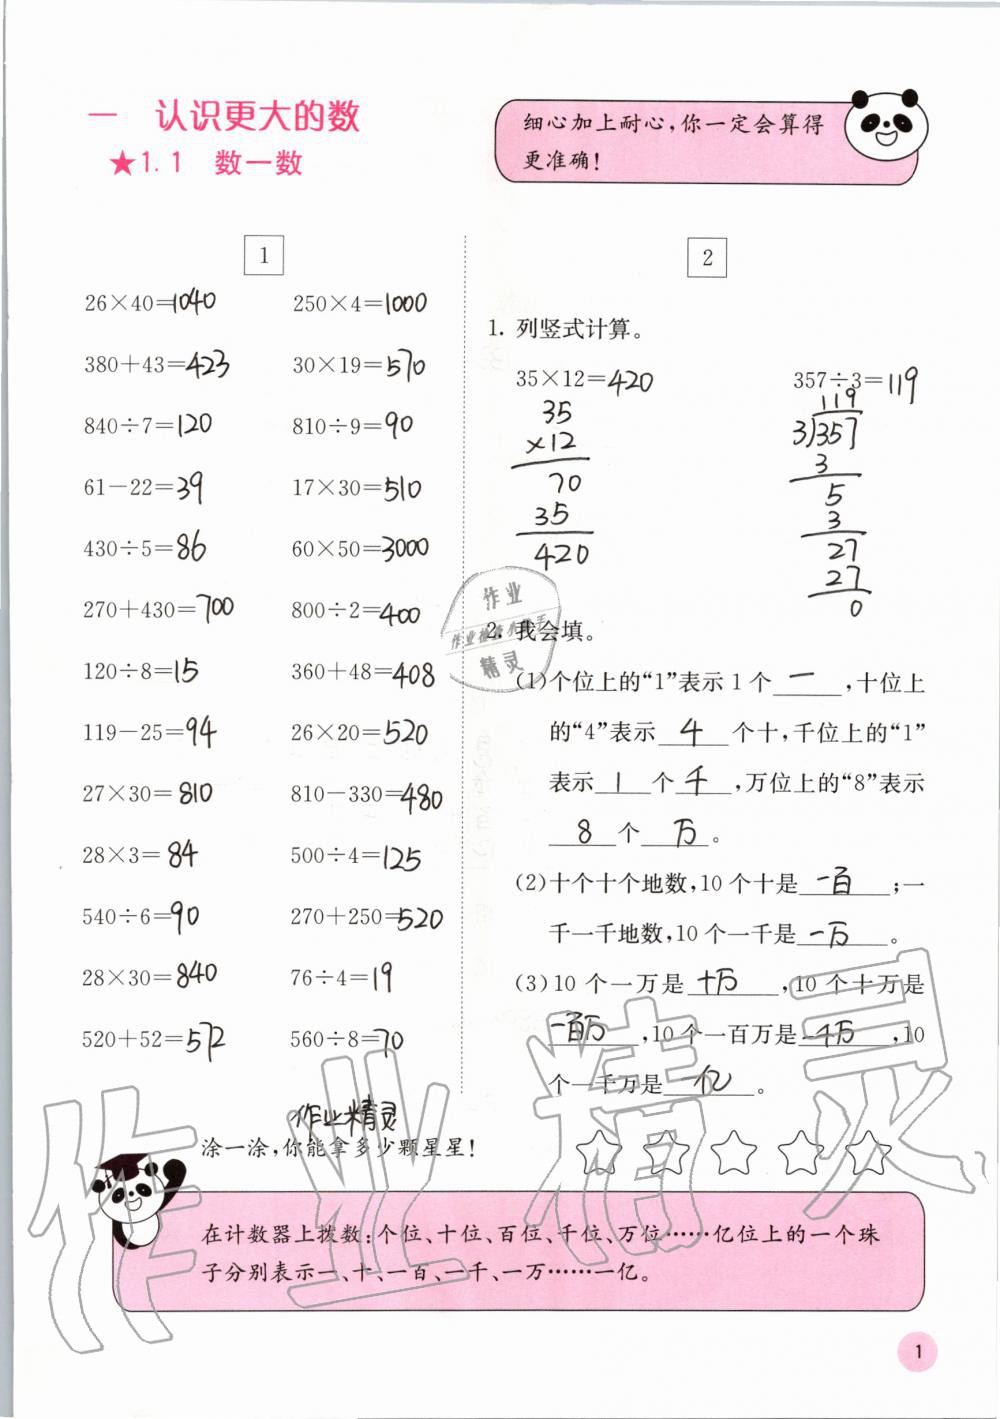 一 认识更大的数
★1.1 数一数
细心加上耐心，你一定会算得
更准确！
1
26×40=1040 250×4=1000
380+43=423 30×19=570
840÷7=120 810÷9=90
61-22=39 17×30=510
430÷5=86 60×50=3000
270+430=700 800÷2=400
120÷8=15 360+48=408
119-25=94 26×20=520
27×30=810 810-330=480
28×3=84 500÷4=125
540÷6=90 270+250=520
28×30=840 76÷4=19
520+52=572 560÷8=70
2
1. 列竖式计算。
35×12=420 357÷3=119
35
×12
70
35
420
119
3)357
3
5
3
27
27
0
2. 我会填。
(1)个位上的“1”表示1个一，十位上
的“4”表示4个十，千位上的“1”
表示1个千，万位上的“8”表示
8个万。
(2)十个十个地数，10个十是一百；一
千一千地数，10个一千是一万。
(3)10个一万是十万，10个十万是
一百万，10个一百万是一千万，10
个一千万是一亿。
作业精灵
涂一涂，你能拿多少颗星星！
在计数器上拨数：个位、十位、百位、千位、万位……亿位上的一个珠
子分别表示一、十、一百、一千、一万……一亿。
1
作业
精灵
作业精灵